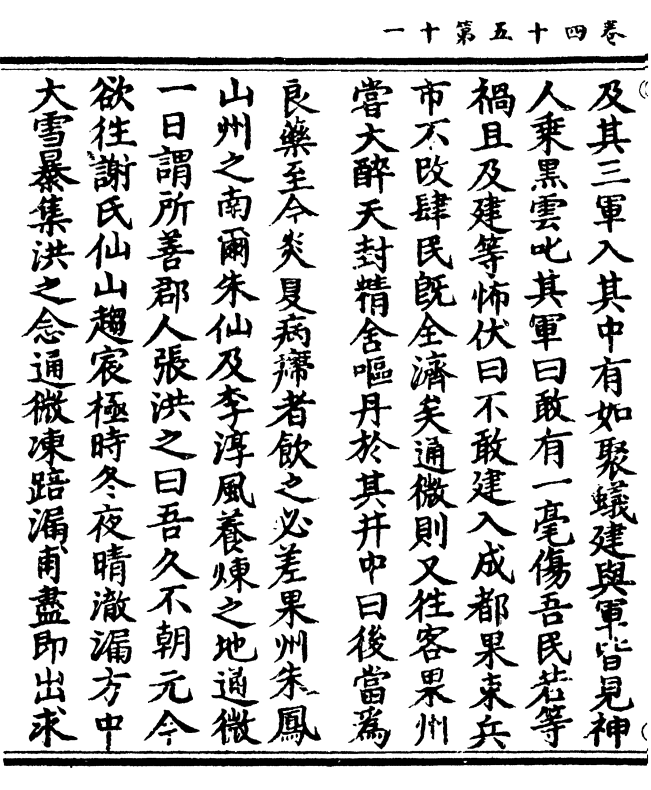 卷四十五第十一
及其三軍入其中有如聚蟻建與軍皆見神
人乘黑雲叱其軍曰敢有一毫傷吾民若等
禍且及建等怖伏曰不敢建入成都果束兵
市不改肆民既全濟矣通微則又徃客果州
嘗大醉天封精舍嘔丹於其井中曰後當爲
良藥至今炎夏病㿃者飲之必差果州朱鳳
山州之南爾朱仙及李淳風養煉之地通微
一日謂所善郡人張洪之曰吾久不朝元今
欲徃謝氏仙山趨宸極時冬夜晴澈漏方中
大雪暴集洪之念通微凍踣漏甫盡即出求